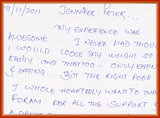 18/11/2011 JENNIFER PETER...
MY EXPERIENCE WAS
AWESOME I NEVER HAD THOUGHT
I WOULD LOOSE MY WEIGHT SO
EASILY AND THAT TOO - ONLY
EATING... THE RIGHT FOOD
I WHOLE HEARTEDLY WANT TO THANK
FORAM FOR ALL THE SUPPORT